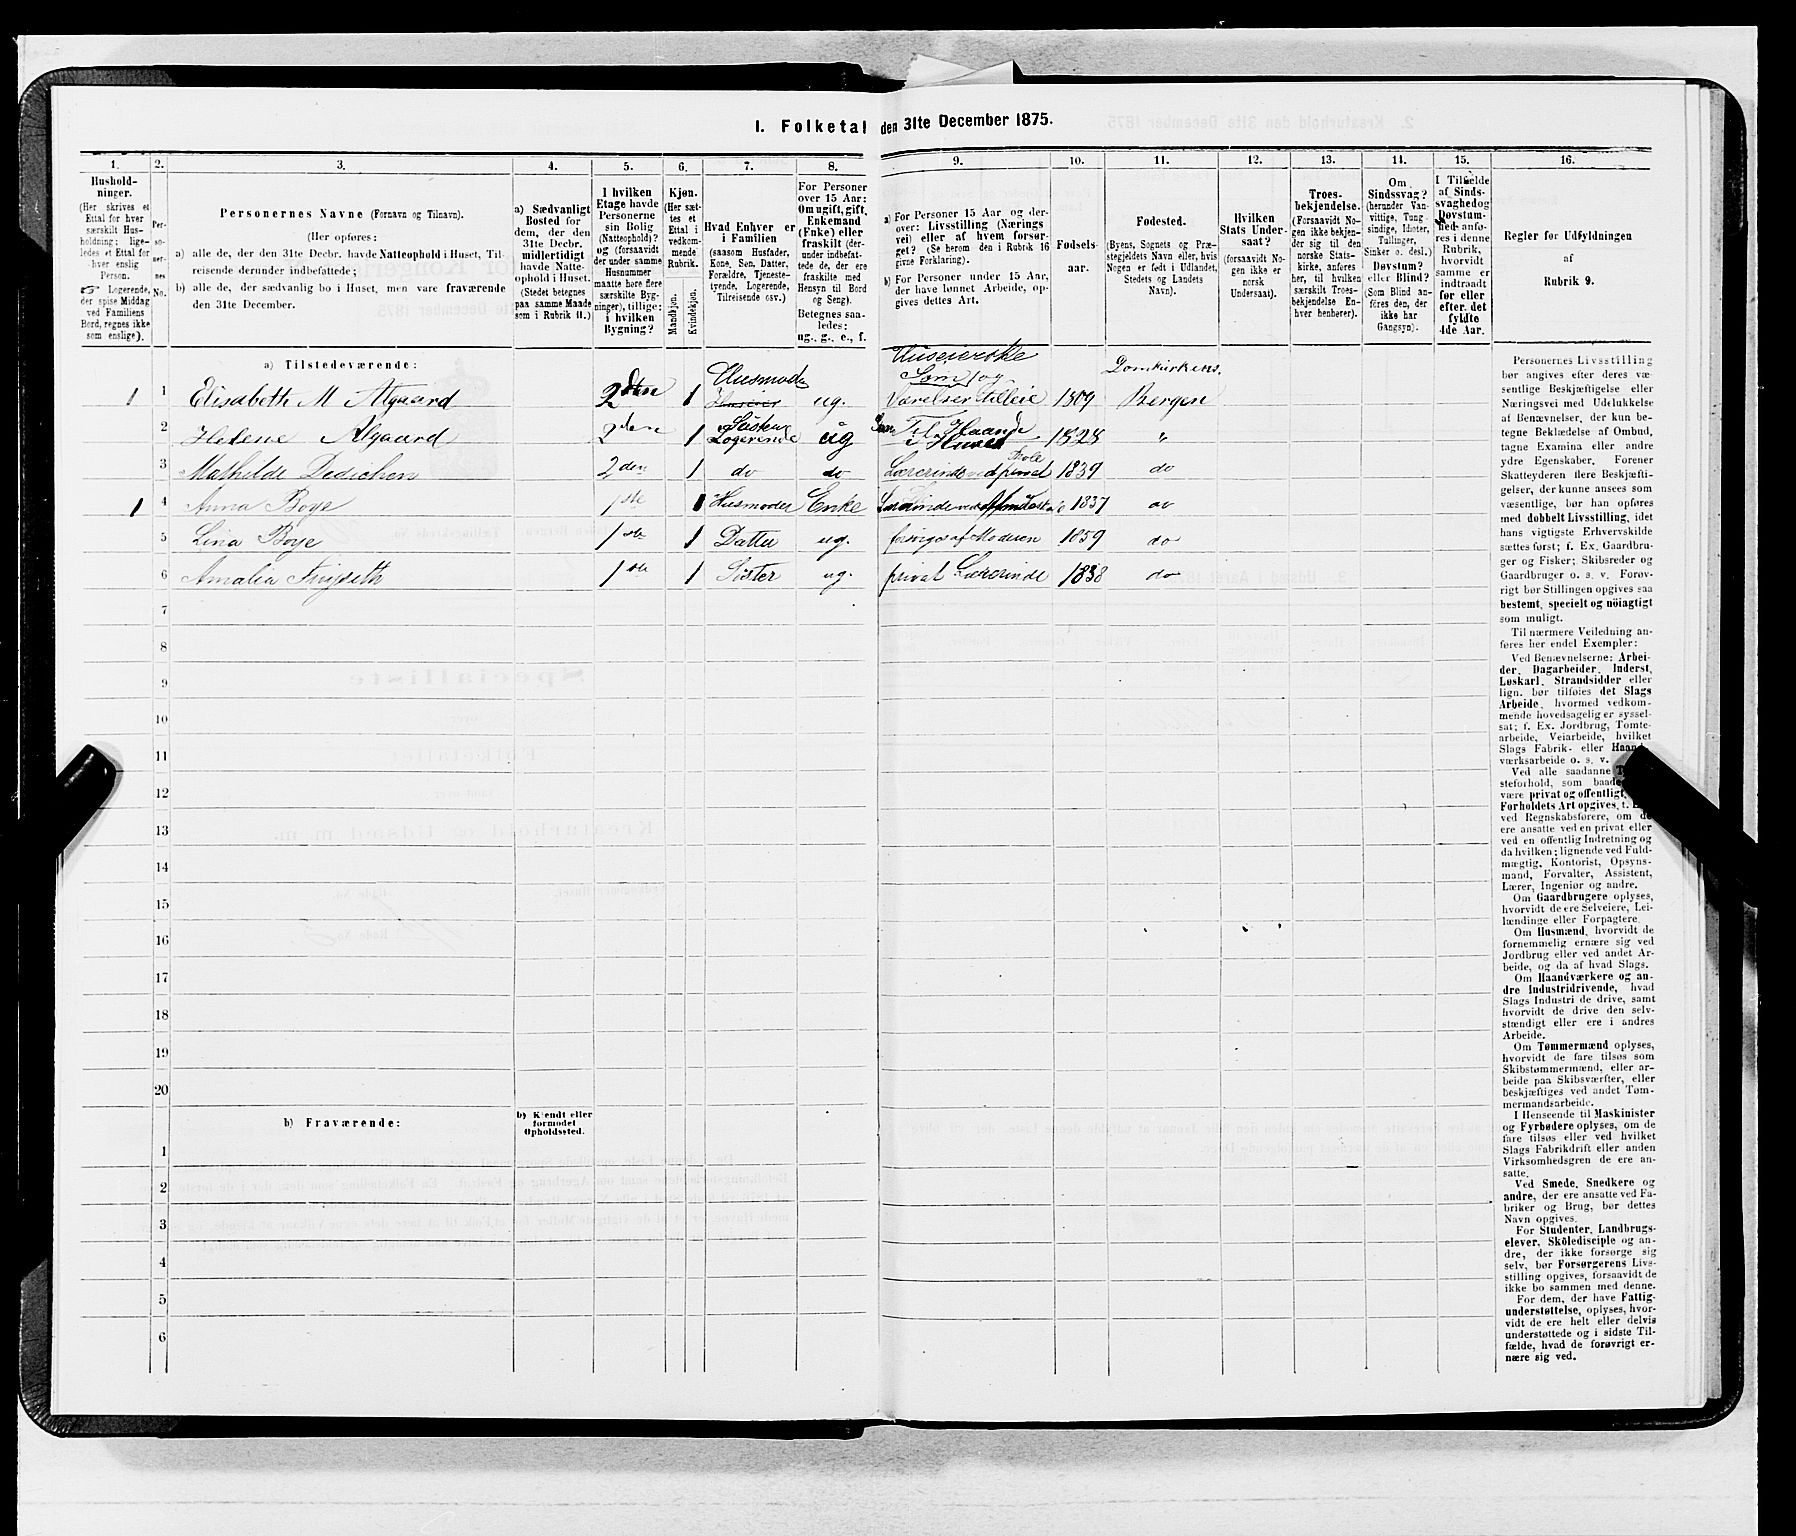 I. Folketal den 31te December 1875.
1. 2. 3. 4. 5. 6. 7. 8. 9. 10. 11. 12. 13. 14. 15. 16.
Hushold-
ninger.
(Her skrives et
Ettal for hver
særskilt Hus-
holdning; lige-
ledes et Ettal for
hver enslig
Person.
☞ Logerende,
der spise Middag
ved Familiens
Bord, regnes ikke
som enslige).
Per-
so-
ner-
nes
No.
Personernes Navne (Fornavn og Tilnavn).
(Her opføres:
a) alle de, der den 31te Decbr. havde Natteophold i Huset, Til-
reisende derunder indbefattede;
b) alle de, der sædvanlig bo i Huset, men vare fraværende
den 31te December.
a) Sædvanligt
Bosted for
dem, der den
31te Decbr.
midlertidigt
havde Natte-
ophold i Huset.
(Stedet betegnes
paa samme Maade
som i Rubrik 11.)
I hvilken
Etage havde
Personerne
sin Bolig
(Natteophold)?
og (forsaavidt
der under samme
Husnummer
maatte høre flere
særskilte Byg-
ninger), tillige:
i hvilken
Bygning?
Kjøn.
(Her sæt-
tes et
Ettal i
vedkom-
mende
Rubrik.
Mandkjøn.
Kvindekjøn.
Hvad Enhver er
i Familien
(saasom Husfader,
Kone, Søn, Datter,
Forældre, Tjeneste-
tyende, Logerende,
Tilreisende osv.)
For Personer
over 15 Aar:
Om ugift, gift,
Enkemand
(Enke) eller
fraskilt (der-
under indbefat-
tede de, der ere
fraskilte med
Hensyn til Bord
og Seng).
Betegnes saa-
ledes:
ug., g., e., f.
a) For Personer 15 Aar og der-
over: Livsstilling (Nærings
vei) eller af hvem forsør-
get? (Se herom den i Rubrik 16
givne Forklaring).
b) For Personer under 15 Aar,
der have lønnet Arbeide, op-
gives dettes Art.
Fødsels-
aar.
Fødested.
(Byens, Sognets og Præ-
stegjeldets Navn eller, hvis
Nogen er født i Udlandet,
Stedets og Landets
Navn).
Hvilken
Stats Under-
saat?
(forsaavidt No-
gen ikke er
norsk
Undersaat).
Troes-
bekjendelse.
(Forsaavidt No-
gen ikke bekjen-
der sig til den
norske Stats-
kirke, anføres
her, til hvilken
særskilt Troes-
bekjendelse En-
hver henhører).
Om
Sindssvag?
(herunder Van-
vittige, Tung
sindige, Idioter,
Tullinger,
Sinker o. desl.)
Døvstum?
eller Blind?
(Som Blind an-
føres den, der
ikke har
Gangsyn).
I Tilfælde
af Sinds-
svaghed og
Døvstum-
hed anfø-
res i denne
Rubrik,
hvorvidt
samme er
indtraadt
før eller
efter det
fyldte
4de Aar.
Regler for Udfyldningen
af
Rubrik 9.
a) Tilstedeværende:
1 1 Elisabeth M Algaard 2den 1 Husmoder ug. Huseierske Som og Værelser tilleie 1809 Domkirkens. Bergen
2 Helene Algaard 2den 1 Søster Logerende ug Til Haande i Huset 1828 "
3 Mathilde Dedichen 2den 1 do do Lærerinde ved privat Skole 1839 do
1 4 Anna Boye 1ste 1 Husmoder Enke 1837 do
5 Lina Boye 1ste 1 Datter ug. forsørges af Moderen 1859 do
6 Amalia 1ste 1 Søster ug. privat Lærerinde 1838 do
7
8
9
10
11
12
13
14
15
16
17
18
19
20
b) Fraværende:
b) Kjendt eller
formodet
Opholdssted.
1
2
3
4
5
6
Personernes Livsstilling
bør angives efter deres væ-
sentlige Beskjæftigelse eller
Næringsvei med Udelukkelse
af Benævnelser, der kun be-
tegne Beklædelse af Ombud,
tagne Examina eller andre
ydre Egenskaber. Forener
Skatteyderen flere Beskjæfti-
gelser, der kunne ansees som
væsentlige, bør han opføres
med dobbelt Livsstilling, idet
hans vigtigste Erhvervskilde
sættes først; f. Ex. Gaardbru-
ger og Fisker; Skibsreder og
Gaardbruger o. s. v. Forøv-
rigt bør Stillingen opgives saa
bestemt, specielt og nöiagtigt
som muligt.
Til nærmere Veiledning an-
føres her endel Exempler:
Ved Benævnelserne: Arbei-
der, Dagarbeider, Inderst,
Løskarl, Strandsidder eller
lign. bør tilføies det Slags
Arbeide, hvormed vedkom-
mende hovedsagelig er syssel-
sat; f. Ex. Jordbrug, Tomte-
arbeide, Veiarbeide, hvilket
Slags Fabrik- eller Haand-
værksarbeide o. s. v.
Ved alle saadanne
steforhold, som baade
være privat og offentligt,
Forholdets Art opgives, t.
ved Regnskabsførere, om de
ere ansatte ved en privat eller
ved en offentlig Indretning og
da hvilken; lignende ved Fuld-
mægtig, Kontorist, Opsyns-
mand, Forvalter, Assistent,
Lærer, Ingeniør og andre.
Om Gaardbrugere oplyses,
hvorvidt de ere Selveiere, Lei-
lændinge eller Forpagtere.
Om Husmænd, hvorvidt de
fornemmelig ernære sig ved
Jordbrug eller ved andet Ar-
beide, og da af hvad Slags.
Om Haandværkere og an-
dre Industridrivende, hvad
Slags Industri de drive, samt
hvorvidt de drive den selv-
stændigt eller ere i andres
Arbeide.
Om Tømmermænd oplyses,
hvorvidt de fare tilsøs som
Skibstømmermænd, eller ar-
beide paa Skibsværfter, eller
beskjæftiges ved andet Tøm-
mermandsarbeide.
I Henseende til Maskinister
og Fyrbødere oplyses, om de
fare tilsøs eller ved hvilket
Slags Fabrikdrift eller anden
Virksomhedsgren de ere an-
satte.
Ved Smede, Snedkere og
andre, der ere ansatte ved Fa-
briker og Brug, bør dettes
Navn opgives.
For Studenter, Landbrugs-
elever, Skoledisciple og an-
dre, der ikke forsørge sig
selv, bør Forsørgerens Livs-
stilling opgives, forsaavidt de
ikke bo sammen med denne.
For dem, der have Fattig-
understøttelse, oplyses, hvor-
vidt de ere helt eller delvis
understøttede og i sidste Til-
fælde, hvad de forøvrigt er-
nære sig ved.